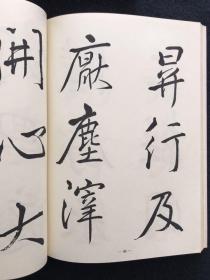 昇行及
厭塵滓
開心大